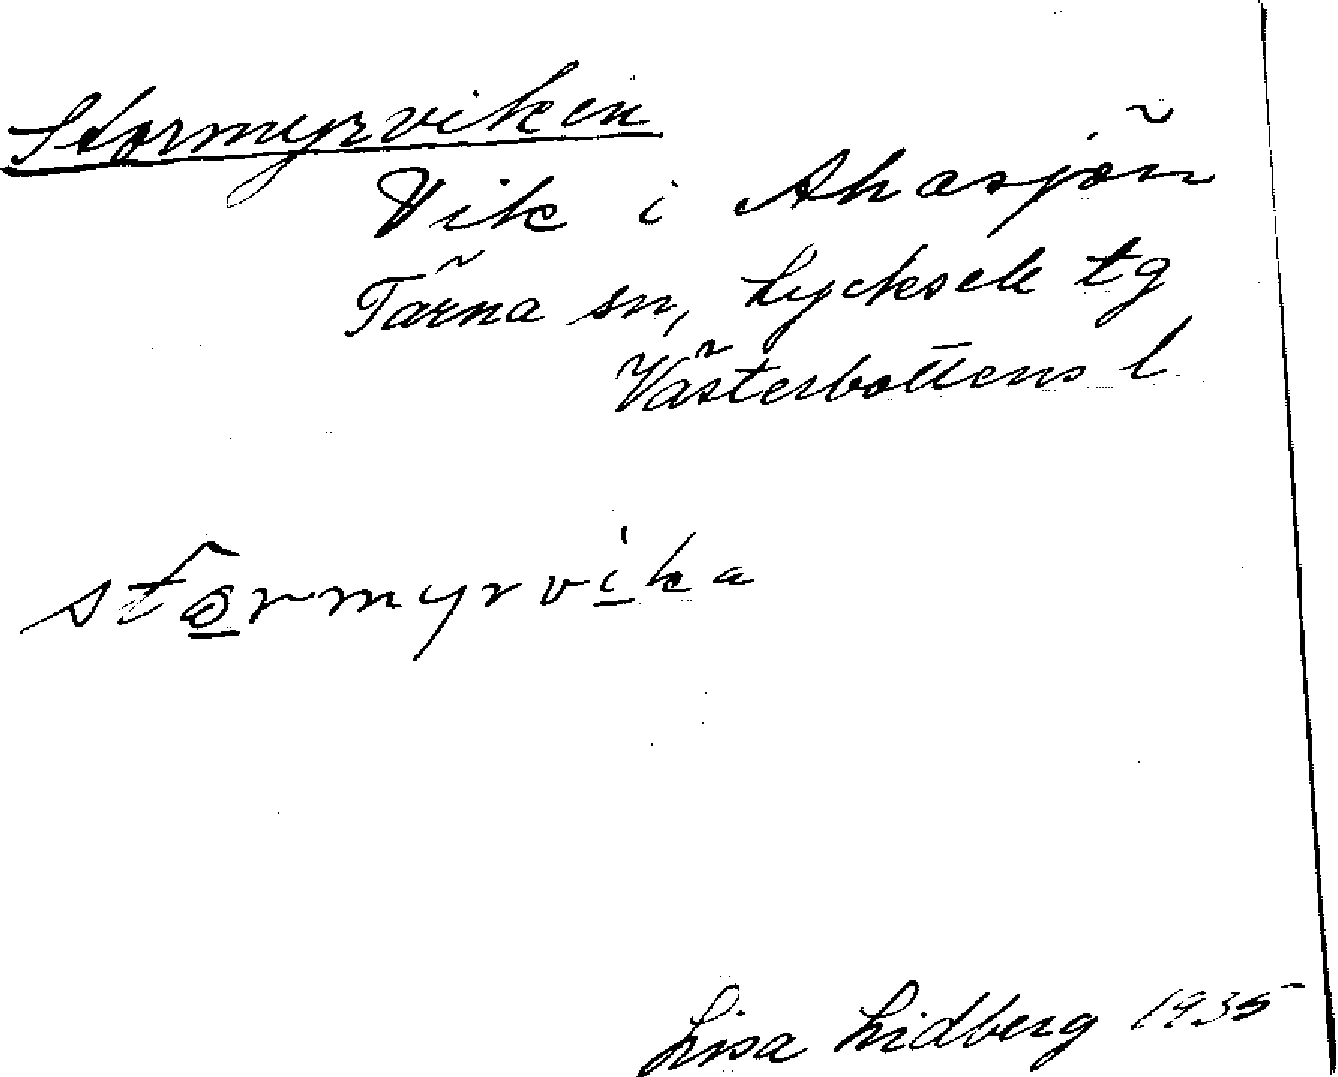 Stormyrviken
Vik i Ahasjön
Tärna sn, Lycksele tg
Västerbottens l
stormyrvika
Lisa Lidberg 1935